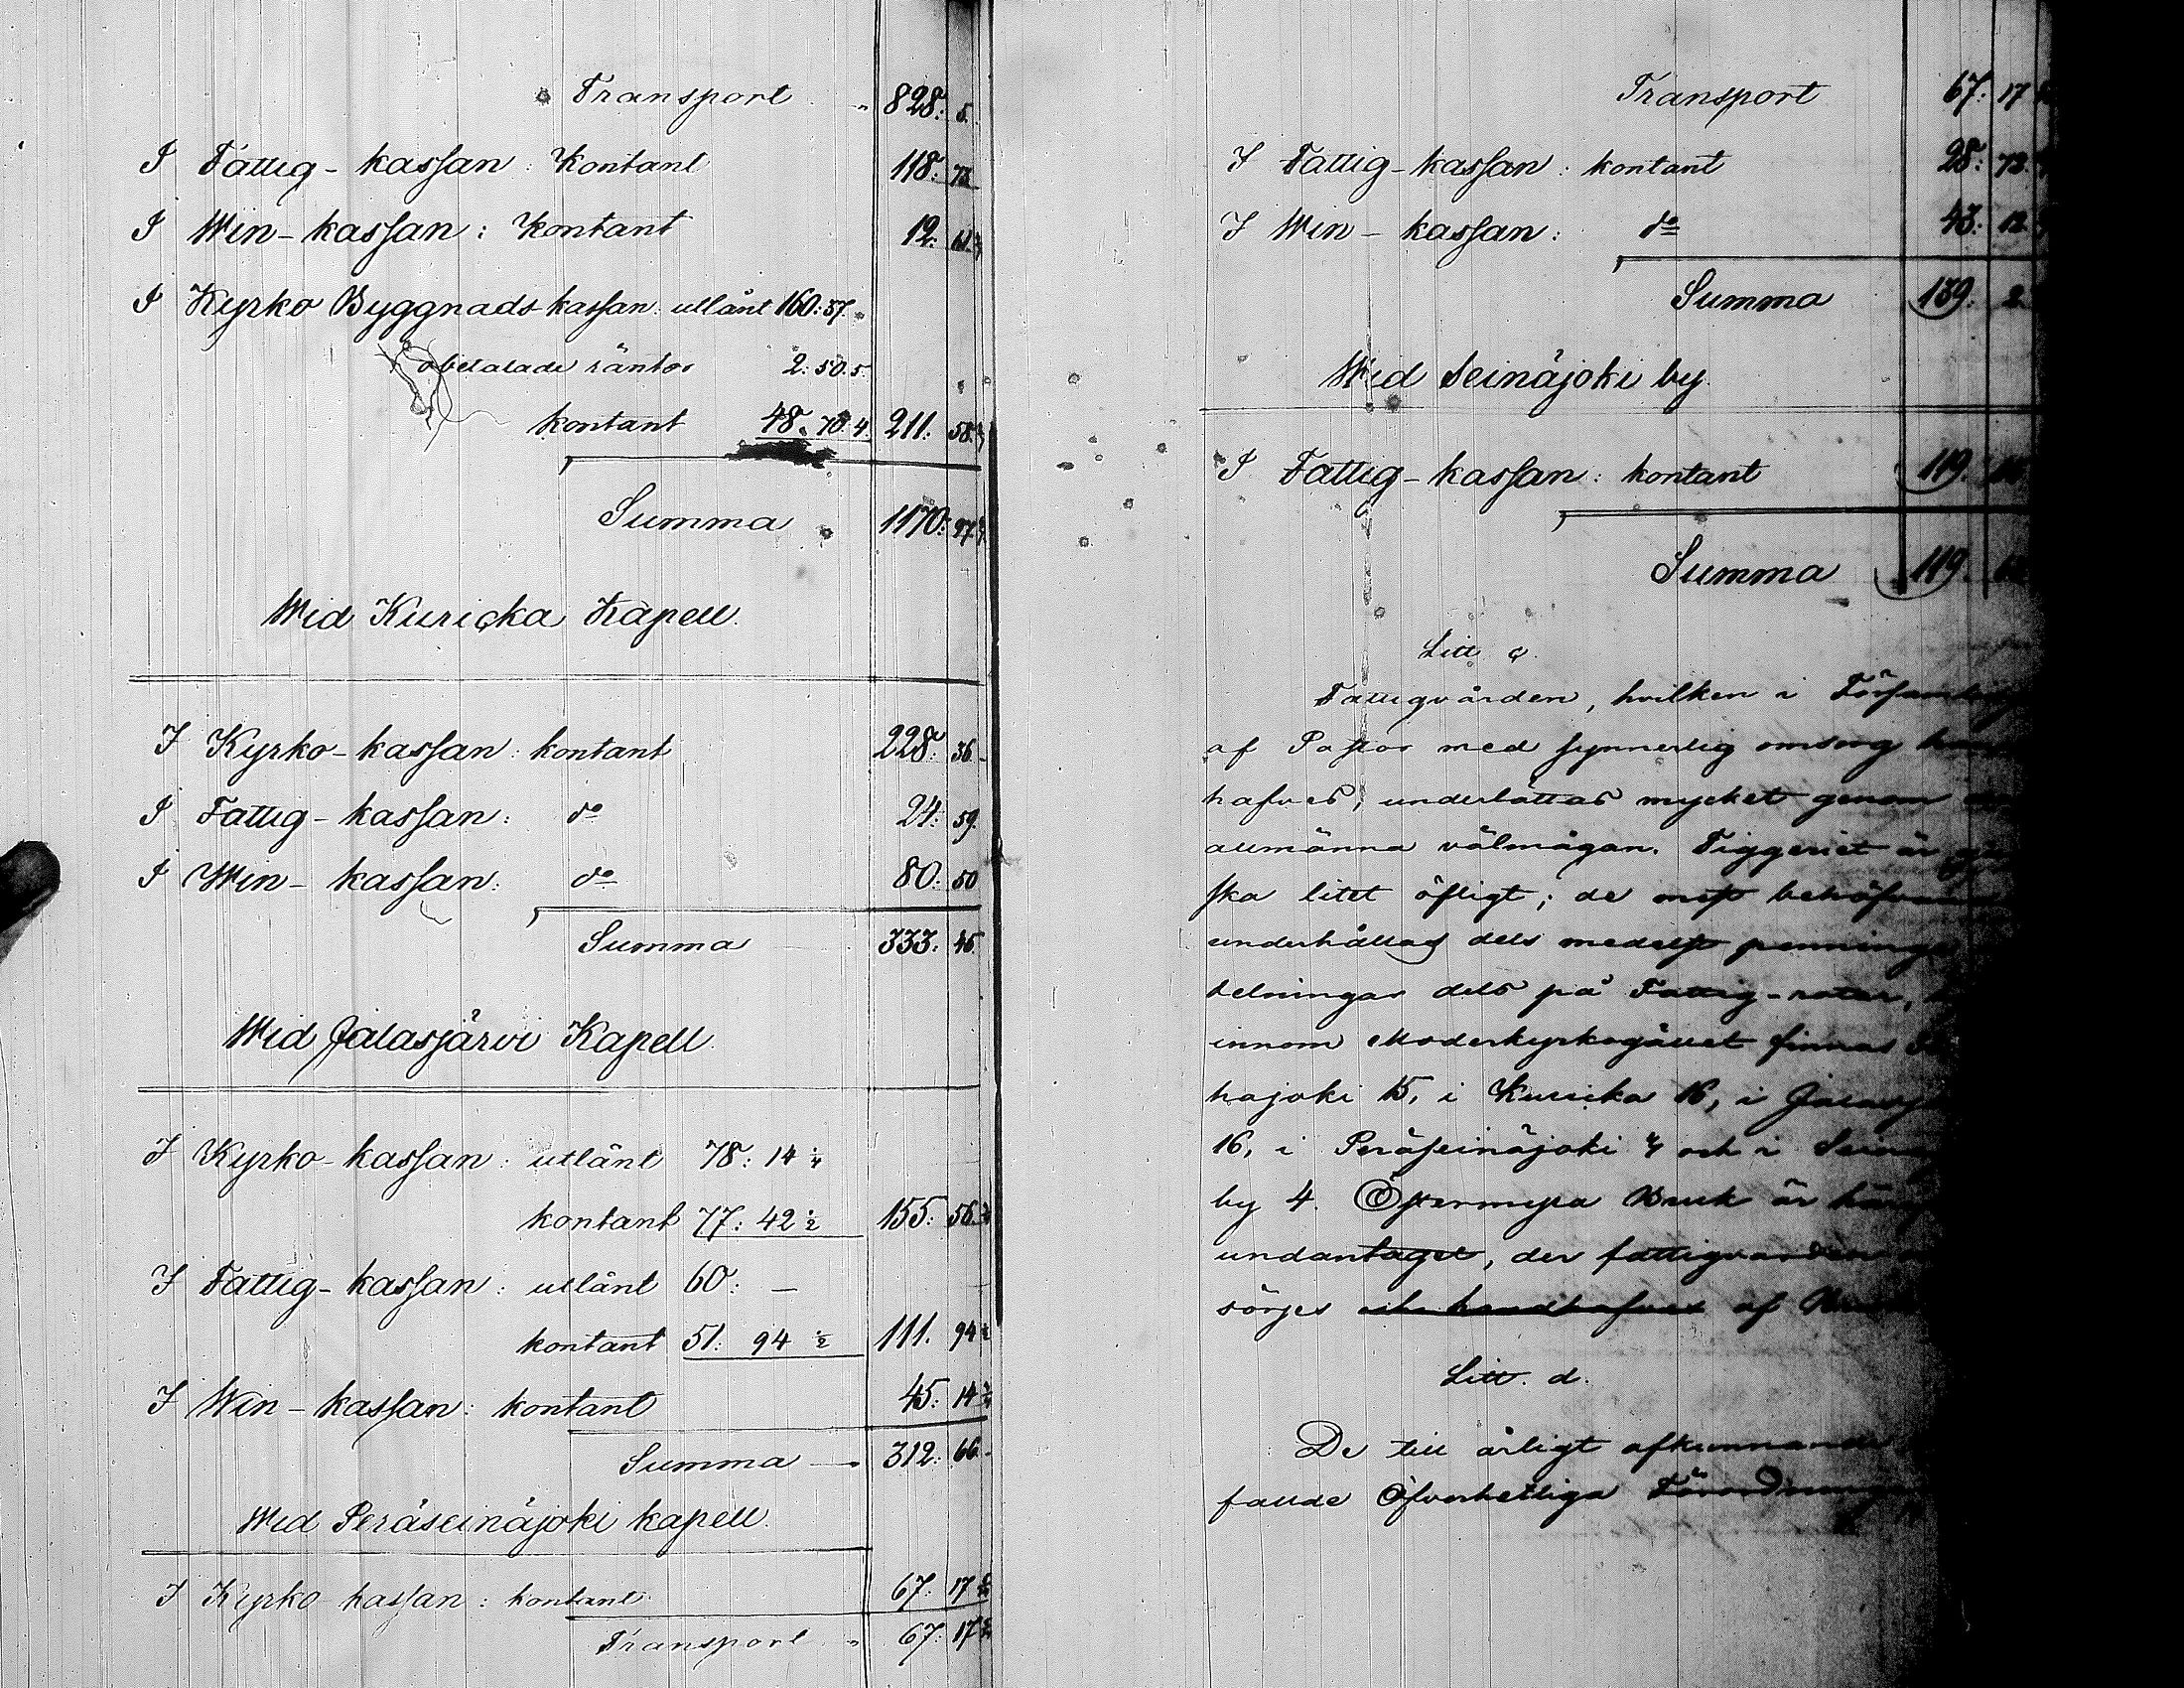 Transport 828: 5.
I Fattig-kassan: Kontant 118: 73
I Win-kassan: Kontant 12:
I Kyrko Byggnads kassan: utlånt 160:57.
obetalade räntor 2:50.5.
kontant 48. 70. 4. 211: 58.
Summa 1170: 97.
Wid Kuricka Kapell.
I Kyrko-kassan: kontant 228: 36.
I Fattig-kassan: do 24: 59.
I Win-kassan: do 80: 50
Summa 333: 45.
Wid Jalasjärvi Kapell.
I Kyrko-kassan: utlånt 78: 14 1/4
kontant 77: 42 1/2 155: 56 3/4
I Fattig-kassan: utlånt 60: —
kontant 51: 94 1/2 111. 94 1/2
I Win-kassan: kontant 45: 14 3/4
Summa — 312: 66.
Wid Peräseinäjoki kapell.
I Kyrko-kassan: kontant 67: 17
Transport 67: 17
Transport 67: 17
I Fattig-kassan: kontant 28: 73.
I Win-kassan: do 43: 12
Summa 139: 2
Wid Seinäjoki by.
I Fattig-kassan: kontant 119.
Summa 119.
Litt c.
Fattigvården, hvilken i
af Pastor med synnerlig omsorg
hafves, underlättas mycket genom
allmänna välmågan. Tiggeriet är
ska litet öfligt; de mest
underhållas dels medelst
delningar dels på Fattig-rotar,
innom Moderkyrkogället finnas
hajoki 15, i Kuricka 16, i
16, i Peräseinäjoki 4 och i
by 4. Östermyra Bruk är
undantaget, der fattigvården
sörjes och handhafves af
Litt. d.
De till årligt
fallde Öfverhetliga